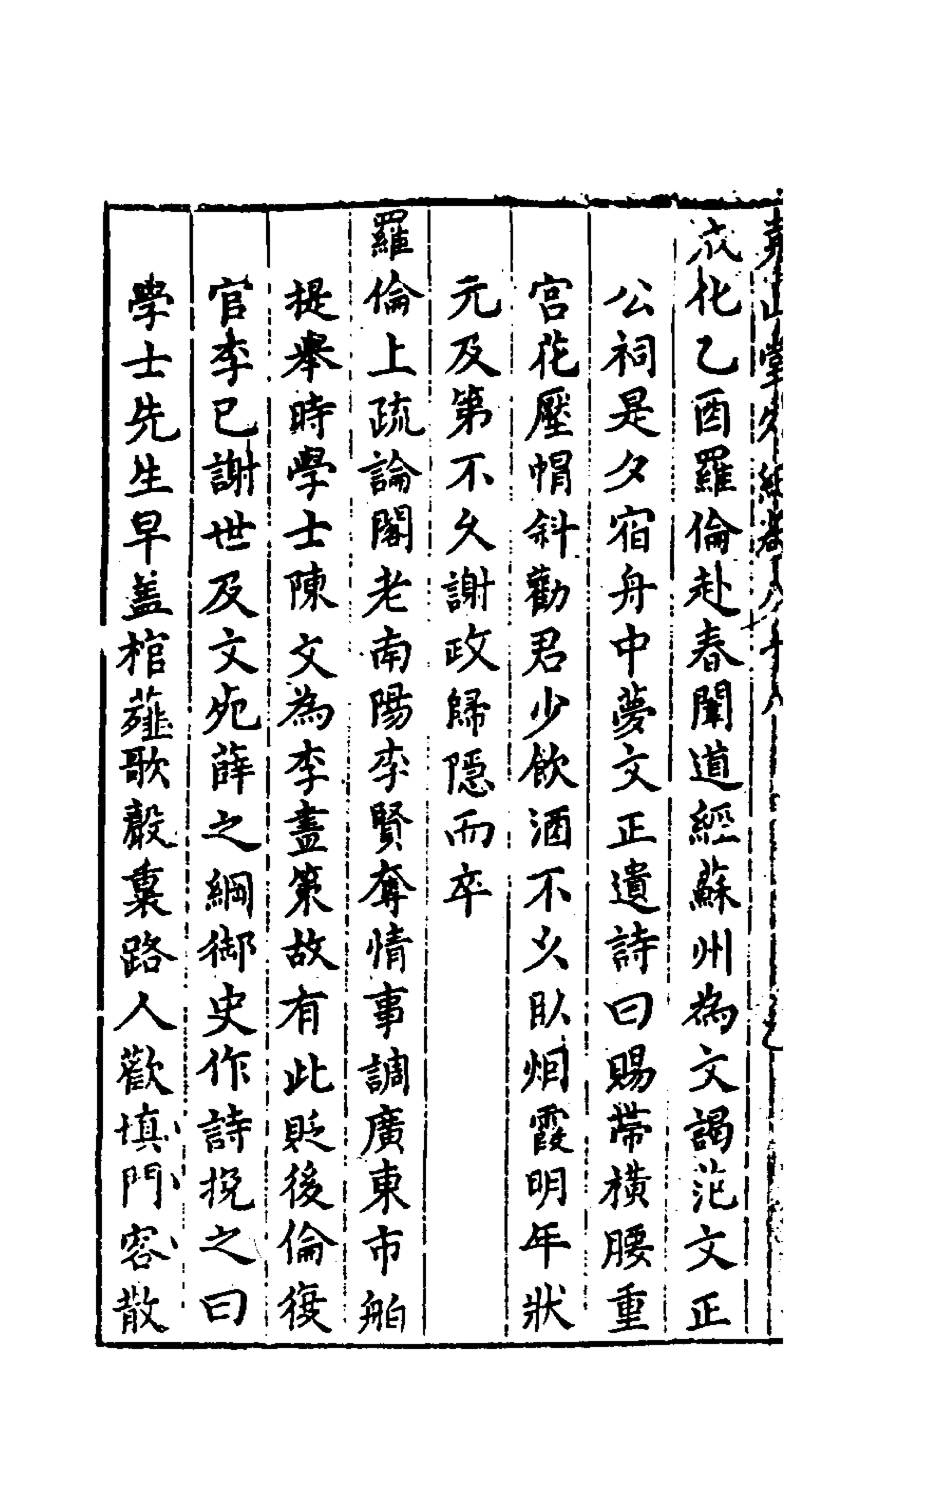 成化乙酉羅倫赴春闈道經蘇州為文謁范文正
公祠是夕宿舟中夢文正遺詩曰賜帶橫腰重
宮花壓帽斜勸君少飲酒不久臥烟霞明年狀
元及第不久謝政歸隱而卒
羅倫上疏論閣老南陽李賢奪情事調廣東市舶
提舉時學士陳文為李畫策故有此貶後倫復
官李已謝世及文死薛之綱御史作詩挽之曰
學士先生早盖棺薤歌聲裏路人歡填門客散